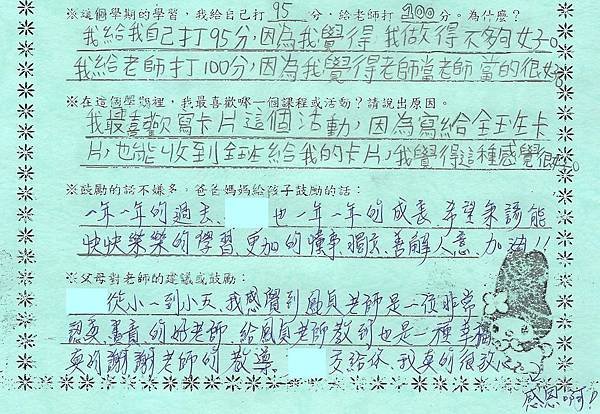 ※這個學期的學習，我給自己打 95 分，給老師打 100 分。為什麼？
我給我自己打95分，因為我覺得我做得不夠好。
我給老師打100分，因為我覺得老師當老師當的很好。
※在這個學期裡，我最喜歡哪一個課程或活動？請說出原因。
我最喜歡寫卡片這個活動，因為寫給全班卡
片，也能收到全班給我的卡片，我覺得這種感覺很好。
※鼓勵的話不嫌多。爸爸媽媽給孩子鼓勵的話：
一年一年的過去、 也一年一年的成長 希望 能
快快樂樂的學習、更加的懂事、獨立、善解人意、加油!!
※父母對老師的建議或鼓勵：
從小一到小六、我感覺到鳳貞老師是一位非常
認真、盡責的好老師、給鳳貞老師教到也是一種幸福
真的謝謝老師的教導、 交給你、我真的很放心
感恩啊!